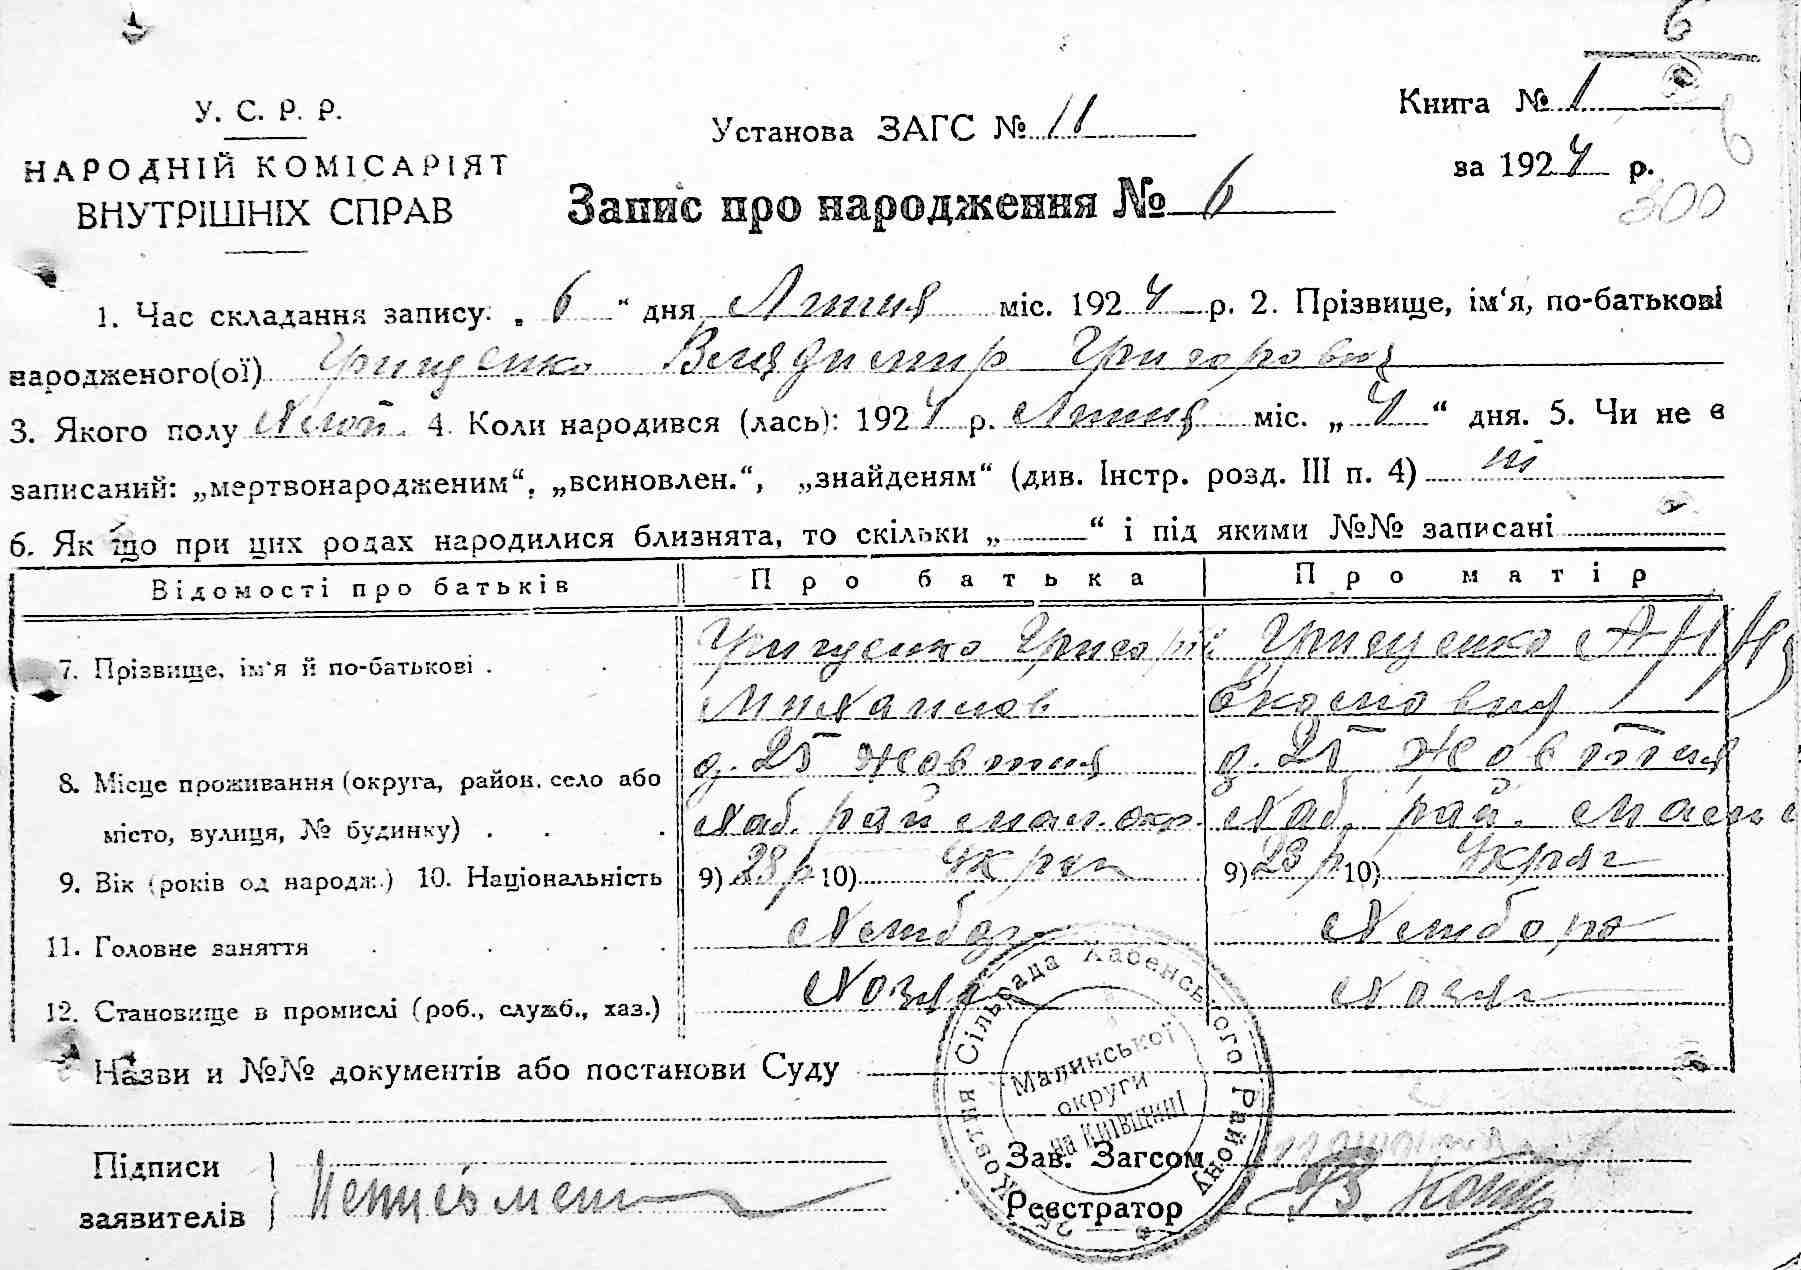 6
У. С. Р. Р.
НАРОДНІЙ КОМІСАРІЯТ
ВНУТРІШНІХ СПРАВ
Установа ЗАГС № 11
Книга № 1
6
за 1924 р.
300
Запис про народження № 6
1. Час складання запису: „ 6 “ дня Лютия міс. 1924 р. 2. Прізвище, ім‘я, по-батькові
народженого(ої) Грищенко Владимир Григорович
3. Якого полу Хлоп. 4. Коли народився (лась): 1924 р. Лютия міс. „ 4 “ дня. 5. Чи не є
записаний: „мертвонародженим“, „всиновлен.“, „знайденям“ (див. Інстр. розд. III п. 4) ні
6. Як що при цих родах народилися близнята, то скільки „ “ і під якими №№ записані
Відомості про батьків Про батька Про матір
7. Прізвище, ім‘я й по-батькові . Грищенко Григорій Грищенко Анна
Михаилов
8. Місце проживання (округа, район, село або д. 25 Жовтня д. 25 Жовтня
місто, вулиця, № будинку) . Хаб. рай мал. окр. Хаб. рай.
9. Вік (років од народж.) 10. Національність 9) 28 р 10) Укра 9) 23 р 10) Украг
11. Головне заняття Хлібор Хлібороб
12. Становище в промислі (роб., служб., хаз.) Хозя Хозяг
Назви и №№ документів або постанови Суду
Сільрада Хабенського Району
Малинської
округи
на Київщині
Підписи
заявителів
Неписьмен
Зав. Загсом
Реєстратор